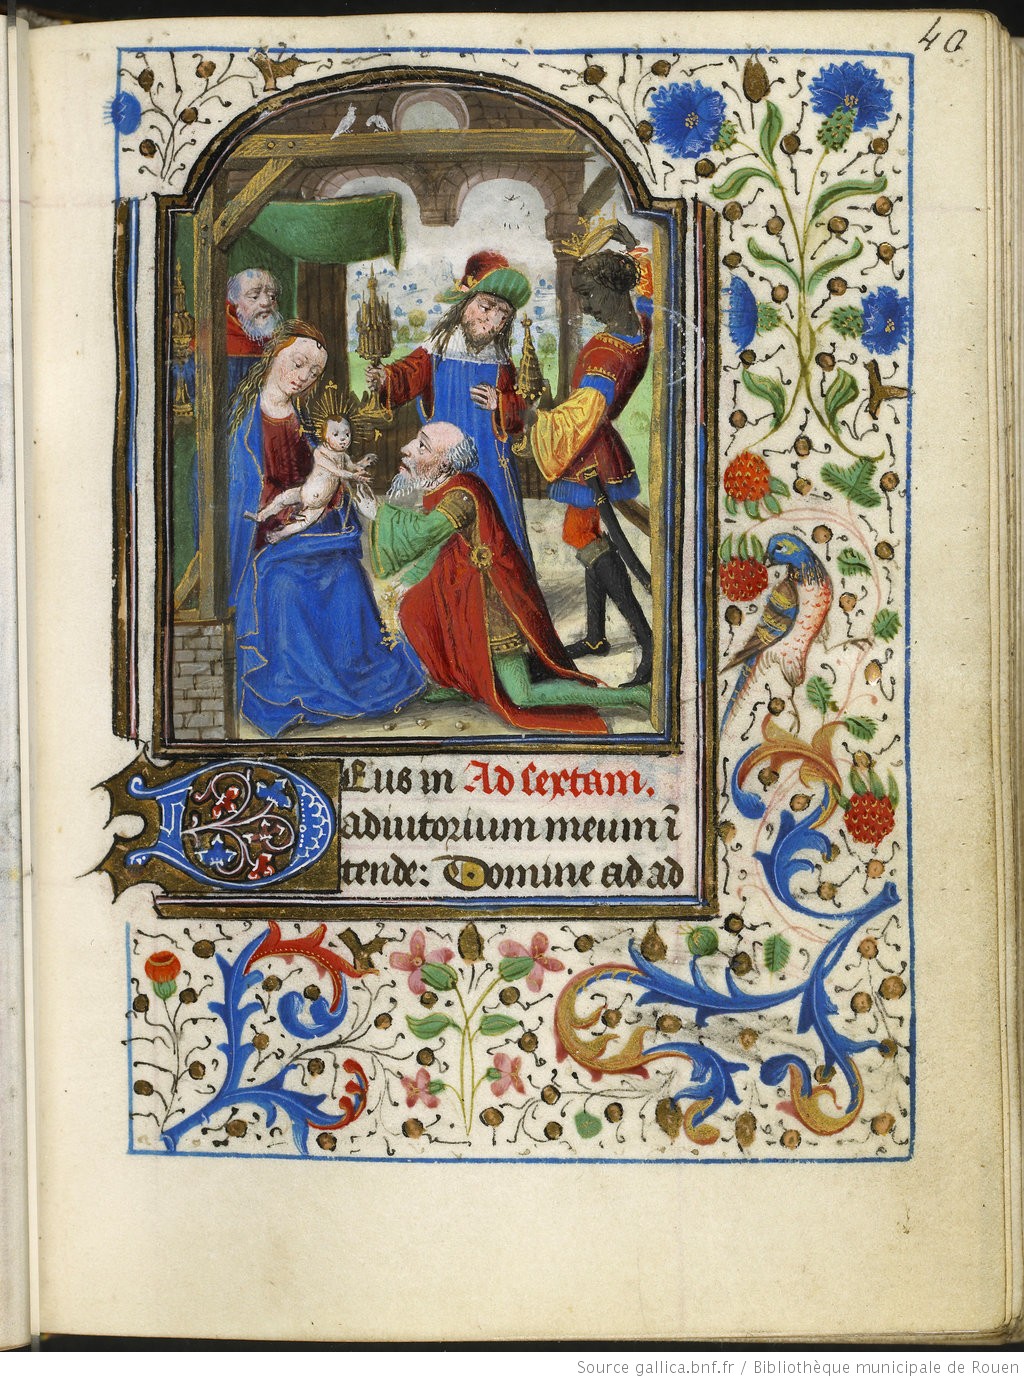 40
Deus in Ad sextam.
adiutorium meum ī
tende: Domine ad ad
Source gallica.bnf.fr / Bibliothèque municipale de Rouen